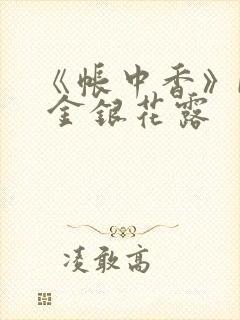 《帐中香》
金银花露
凌敢高